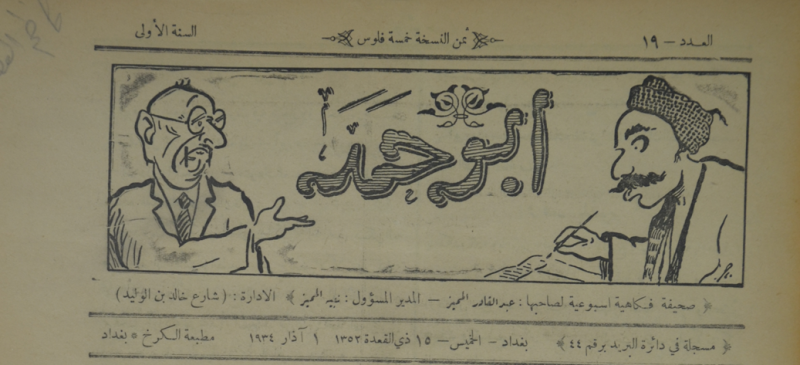 العدد – ١٩ ثمن النسخة خمسة فلوس السنة الأولى
أبو حمد
صحيفة فكاهية اسبوعية لصاحبها : عبد القادر المميز – المدير المسؤول : المميز الادارة : ( شارع خالد بن الوليد )
مسجلة في دائرة البريد برقم ٤٤ بغداد – الخميس – ١٥ ذي القعدة ١٣٥٢ ١ آذار ١٩٣٤ مطبعة الكرخ * بغداد